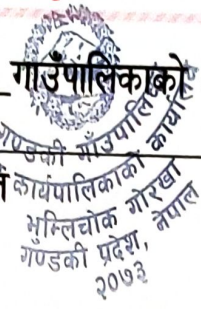 गाउँपालिकाको
गण्डकी गाउँपालिका
कार्यपालिकाको कार्यालय
भुम्लिचोक गोरखा
गण्डकी प्रदेश, नेपाल
२०७३